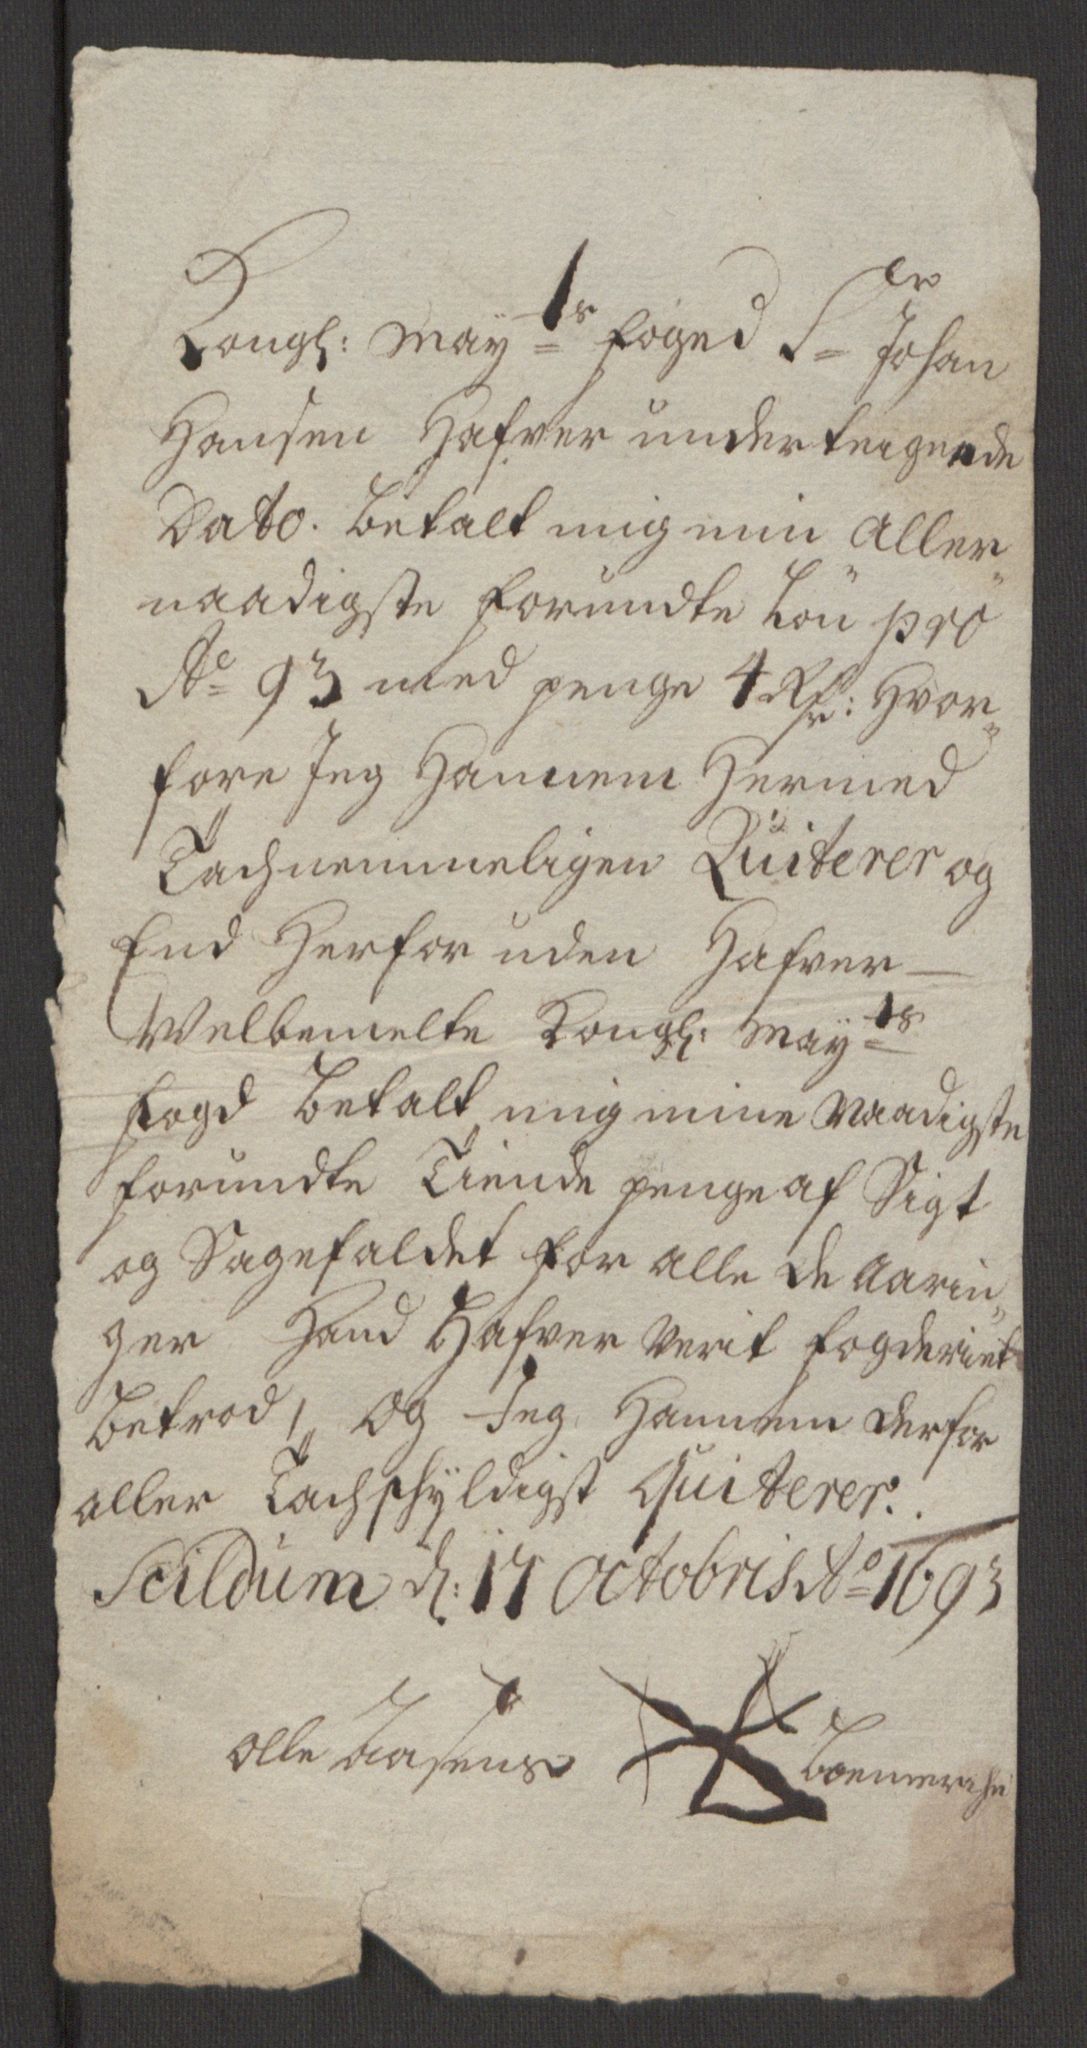 Kongl: Mayts foged Sr Johan
Hansen Hafver underteignede
Dato. betalt mig min Aller„
naadigste forundte Lön pro
Ao 93 med penge 4 Rdr: Hvor„
fore Jeg Hannem Hermed
Tachnemmeligen Quiterer og
End Herfor uden Hafver
Welbemelte Kongl: Mayts
fogd betalt mig mine Naadigste
forundte Tiende penge af Sigt
og Sagefaldet for alle de Aarin„
ger Hand Hafver Verit fogderiet
betrod, Og Jeg Hannem derfor
aller Tachschyldigst Quiterer.
Scildum d: 17 Octobris Ao 1693
Olle Aasens boemerche